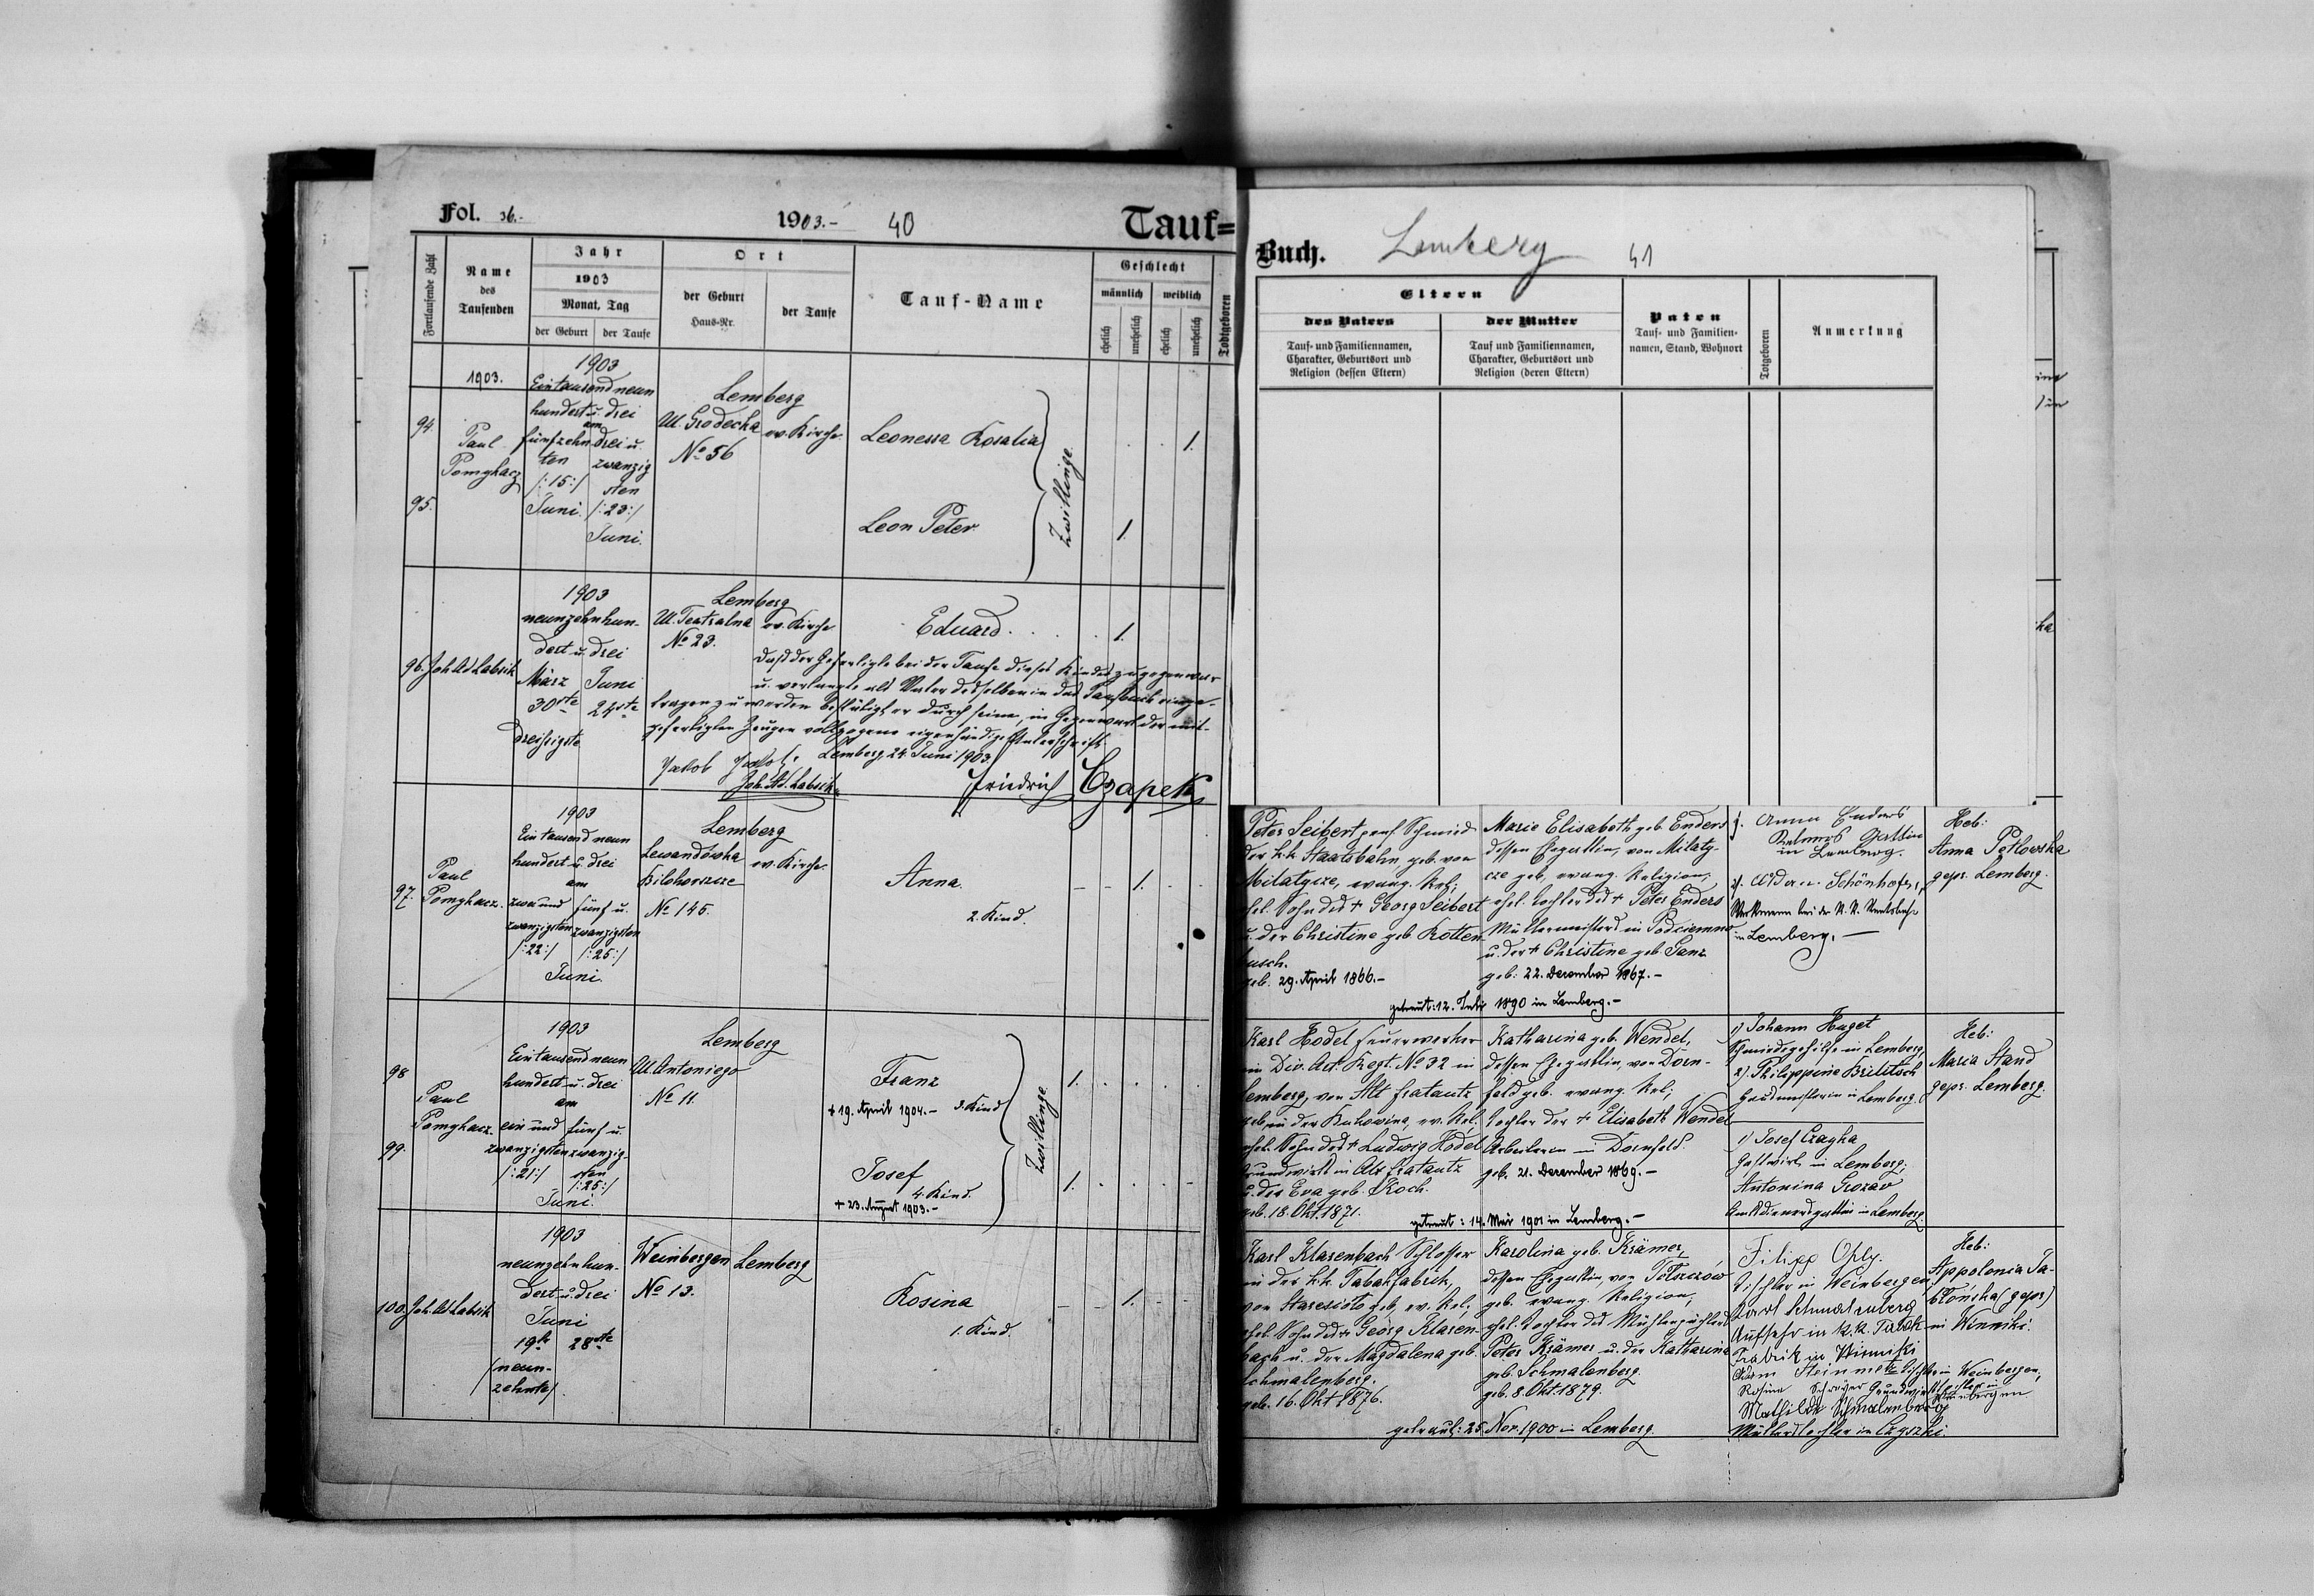 Fol. 36.-
1903.-
40
Tauf=
Fortlaufende Zahl
Name
des
Taufenden
Jahr
1903
Monat, Tag
der Geburt
der Taufe
Ort
der Geburt
Haus-Nr.
der Taufe
Tauf-Name
Geschlecht
männlich
weiblich
ehelich
unehelich
ehelich
unehelich
Todtgeboren
1903.
94.
95.
Paul
Pomykacz
1903
Eintausendneun
hundert u. drei
am
fünfzehn
ten
/:15:/
Juni.
drei u.
zwanzig
sten
/:23:/
Juni.
Lemberg
Ul. Grodecka
No 56
ev. Kirche.
Leonessa Rosalia
1.
Leon Peter
1.
Zwillinge
96. Joh Ad Labsik
1903
neunzehnhun-
dert u. drei
März
30ste
dreißigste
Juni
24ste
Lemberg
Ul. Teatralna
No 23.
ev. Kirche
Eduard.
1.
Daß der Gefertigte bei der Taufe dieses Kindes zugegen war
u. verlangte als Vater desselben in das Taufbuch einge-
tragen zu werden bestätigt er durch seine, in Gegenwart der mit-
gefertigten Zeugen vollzogene eigenhändige Unterschrift
Lemberg, 24. Juni 1903.
Jakob
Joh. Ad. Labsik
Friedrich Czapek
97.
Paul
Pomykacz.
1903
Eintausendneun
hundert u. drei
am
zwei und
zwanzigsten
/:22:/
fünf u.
zwanzigsten
/:25:/
Juni.
Lemberg
Lewandówka
Bilohorszcze
No 145.
ev. Kirche.
Anna.
2. Kind
1.
98
99.
Paul
Pomykacz.
1903
Eintausendneun
hundert u. drei
am
ein und
zwanzigsten
/:21:/
fünf u.
zwanzig-
sten
/:25:/
Juni.
Lemberg
Ul. Antoniego
No 11.
Franz
+ 19. April 1904.- 3. Kind
1.
Josef
4. Kind.
+ 23. August 1903.-
1.
Zwillinge
100. Joh. Ad Labsik
1903
neunzehnhun-
dert u. drei
Juni
19te
/neun-
zehnte/
28ste
Weinbergen
No 13.
Lemberg
Rosina
1. Kind.
1.
Buch.
Lemberg
41
Eltern
des Vaters
Tauf- und Familiennamen,
Charakter, Geburtsort und
Religion (dessen Eltern)
der Mutter
Tauf und Familiennamen,
Charakter, Geburtsort und
Religion (deren Eltern)
Paten
Tauf- und Familien-
namen, Stand, Wohnort
Totgeboren
Anmerkung
Peter Seibert prof Schmied
der k.k. Staatsbahn, geb. von
Milatycze, evang. Rel.;
ehel. Sohn des + Georg Seibert
u. der Christine geb. Rotten-
busch.
geb. 29. April 1866.-
Marie Elisabeth geb. Enders
dessen Ehegattin, von Milaty-
cze geb., evang. Religion,
ehel. Tochter des + Peter Enders
Müllermeisters in Podciemno
u. der + Christine geb. Ganz
geb: 22. Dezember 1867.-
getraut: 12. Juli 1890 in Lemberg.-
1. Anna Enders
Gattin
in Lemberg.
2). Schönhofer,
Werkmann bei der K. K. Staatsbahn
in Lemberg.-
Heb:
Anna Petlowska
gepr. Lemberg.
Karl Hodel Feuerwerker
im Div. Art. Regt. No 32 in
Lemberg, von Alt fratautz
geb, in der Bukowina, ev. Rel.
ehel. Sohn des + Ludwig Hodel
Grundwirt in Alt fratautz
u. der Eva geb. Koch.
geb. 18. Okt. 1871.
Katharina geb. Wendel,
dessen Ehegattin, von Dorn-
feld geb. evang. Rel;
Tochter der + Elisabeth Wendel
Arbeiterin in Dornfeld.
geb. 21. Dezember 1869.-
getraut: 14. Mai 1901 in Lemberg.-
1) Johann Huget
Schmiedegehilfe in Lemberg,
2). Philippine Brilitsch
in Lemberg.
1) Josef Czayka
Gastwirt in Lemberg;
Antonina Grozav
Amtsdienersgattin in Lemberg.
Heb:
Maria Stand
gepr. Lemberg.
Karl Klarenbach Schlosser
in der k.k. Tabakfabrik,
von Staresioto geb, ev. Rel;
ehel. Sohn des + Georg Klaren-
bach u. der Magdalena geb.
Schmalenberg.
geb. 16. Okt 1876.
Karolina geb. Krämer,
dessen Ehegattin, von Tolszczów
geb. evang. Religion,
ehel. Tochter des Mühlenpächters
Peter Krämer u. der Katharina
geb. Schmalenberg.
geb. 8. Okt. 1879.
getraut: 25. Nov. 1900 in Lemberg.
Filipp Ohly.
Tischler in Weinbergen
Karl Schmalenberg
Aufseher in K.K. Tabak
Fabrik in Winniki
Adam Steinmetz Tischler in Weinbergen,
Rosina Schreyer
Weinbergen
Mathilde Schmalenberg
Müllerstochter in Czyszki.
Heb:
Appolonia Ja-
błońska (gepr)
in Winniki.